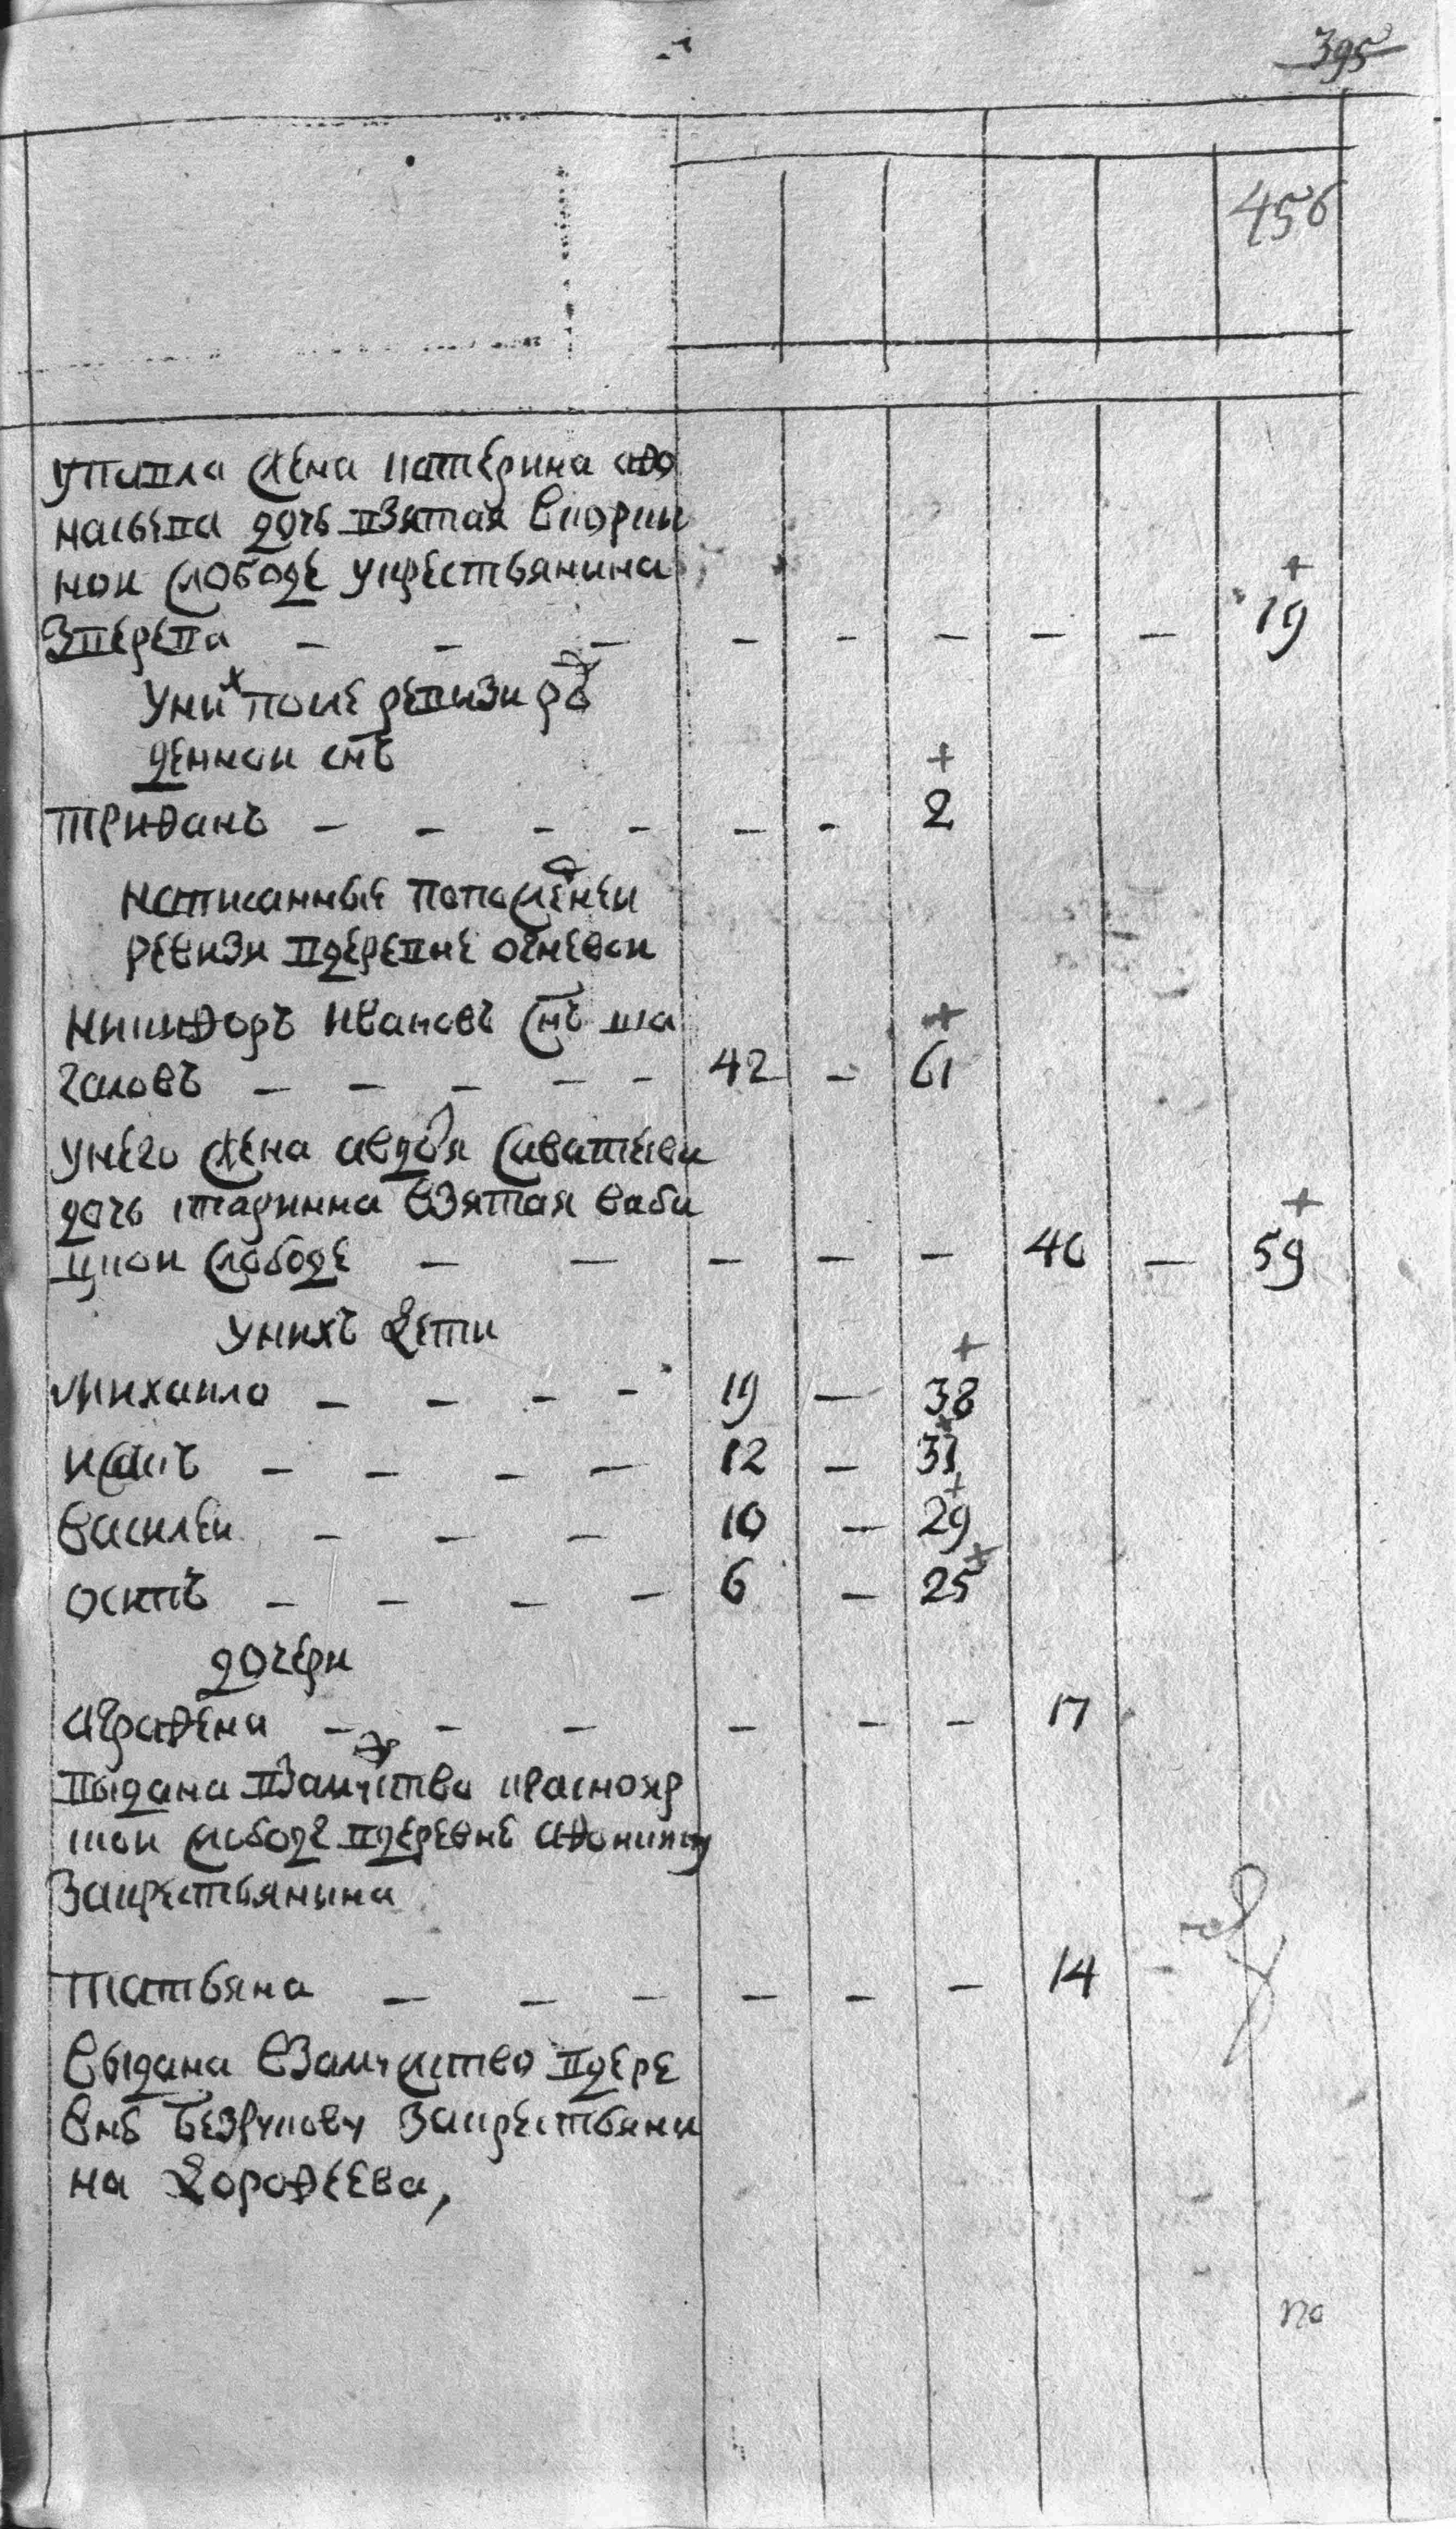 395
456
упавла жена катерина афо
насьева дочь взятая вкорки
нои слободе укрестьянина
Зверева — — — — — — — — 19
уних после ревизи ро
жденнои снъ
трифанъ — — — — — — 2
написанные попоследнеи
ревизи вдеревне огневои
никифоръ ивановъ снъ ша
галовъ — — — — — 42 — 61
унего жена авдотя саватеева
дочь старинна взятая ваба
цкои слободе — — — — — 40 — 59
унихъ дети
михаило — — — — 19 — 38
исакъ — — — — 12 — 31
василеи — — — 10 — 29
осипъ — — — — 6 — 25
дочери
аграфена — — — — — — 17
выдана взамужство краснояр
скои слободе вдеревне афонкину
закрестьянина
татьяна — — — — — — 14
выдана взамужство вдере
вне безрукову закрестьяни
на дорофеева,
по